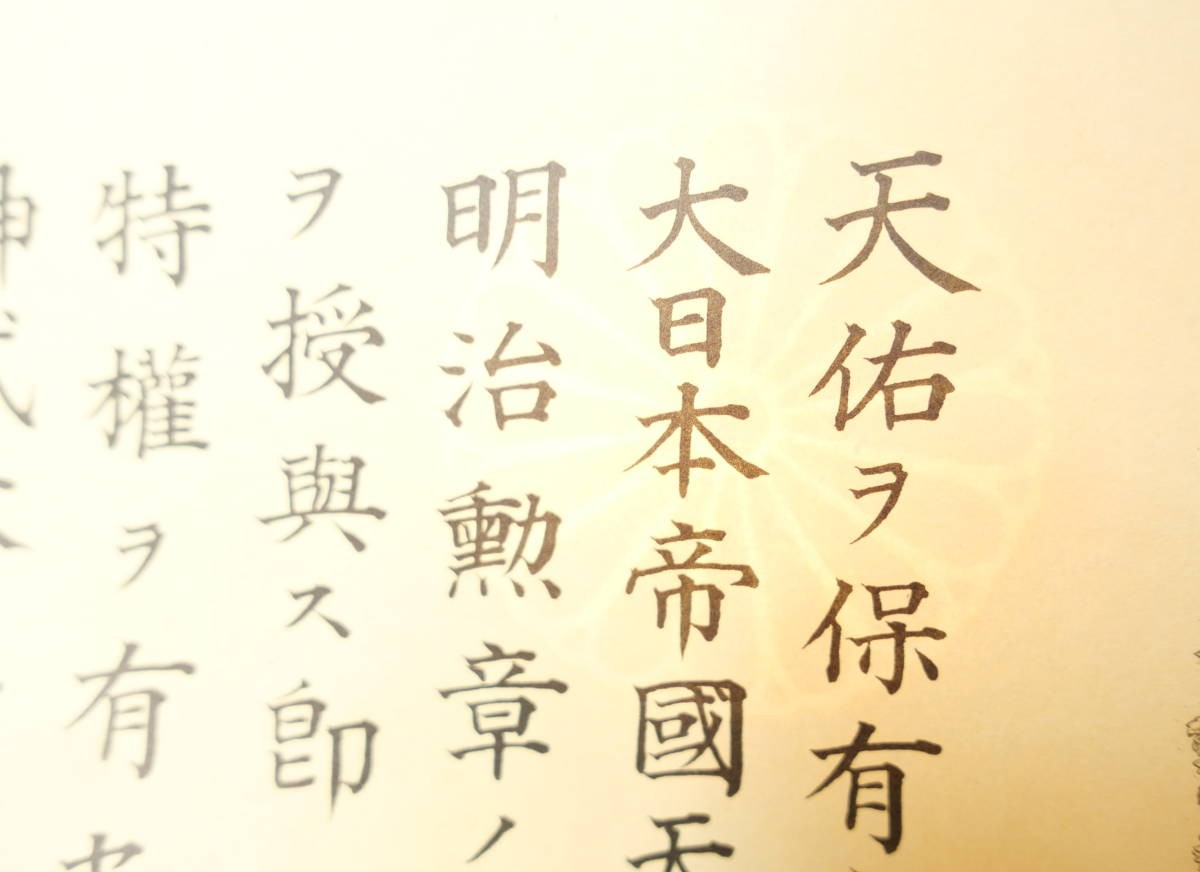 天佑ヲ保有
大日本帝國天
明治勲章ノ
ヲ授與ス卽
特權ヲ有セ
神武天